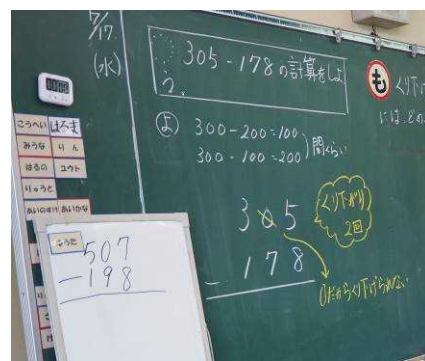 7/17.
(水)
305-178の計算をしよ
う。
よ 300-200=100
300-100=200
間くらい
305
-178
くり下がり
2回
0だからくり下げられない
も くり下げ
には、
こうへい はるま
みうな りん
はるの ユウト
りゅうと
あいのすけ あいかな
こうた
507
-198